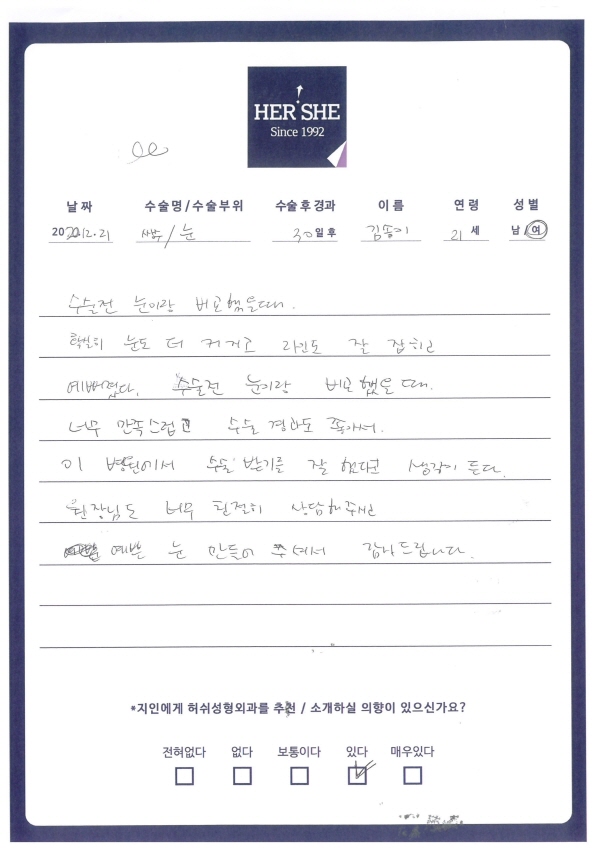 HER SHE
Since 1992
날짜 수술명/수술부위 수술 후 경과 이름 연령 성별
2022.12.21 쌍수/눈 30일 후 21세 남/여
수술전 눈이랑 비교했을때.
확실히 눈도 더 커지고 라인도 잘 잡히고
예뻐졌다. 수술전 눈이랑 비교했을때.
너무 만족스럽고 수술 경과도 좋아서.
이 병원에서 수술 받기를 잘 했다란 생각이 든다.
원장님도 너무 친절히 상담해주시고
예쁜 눈 만들어 주셔서 감사드립니다.
*지인에게 허쉬성형외과를 추천 / 소개하실 의향이 있으신가요?
전혀없다 없다 보통이다 있다 매우있다